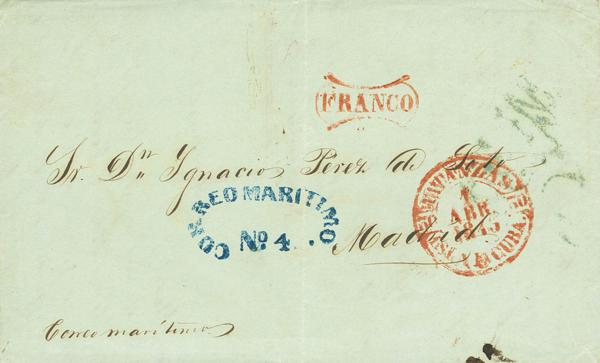 FRANCO
Sr. Dn. Ygnacio Perez de Soto
CORREO MARITIMO
No. 4.
Madrid
MATANZAS
1
ABR
CUBA.
Correo maritimo